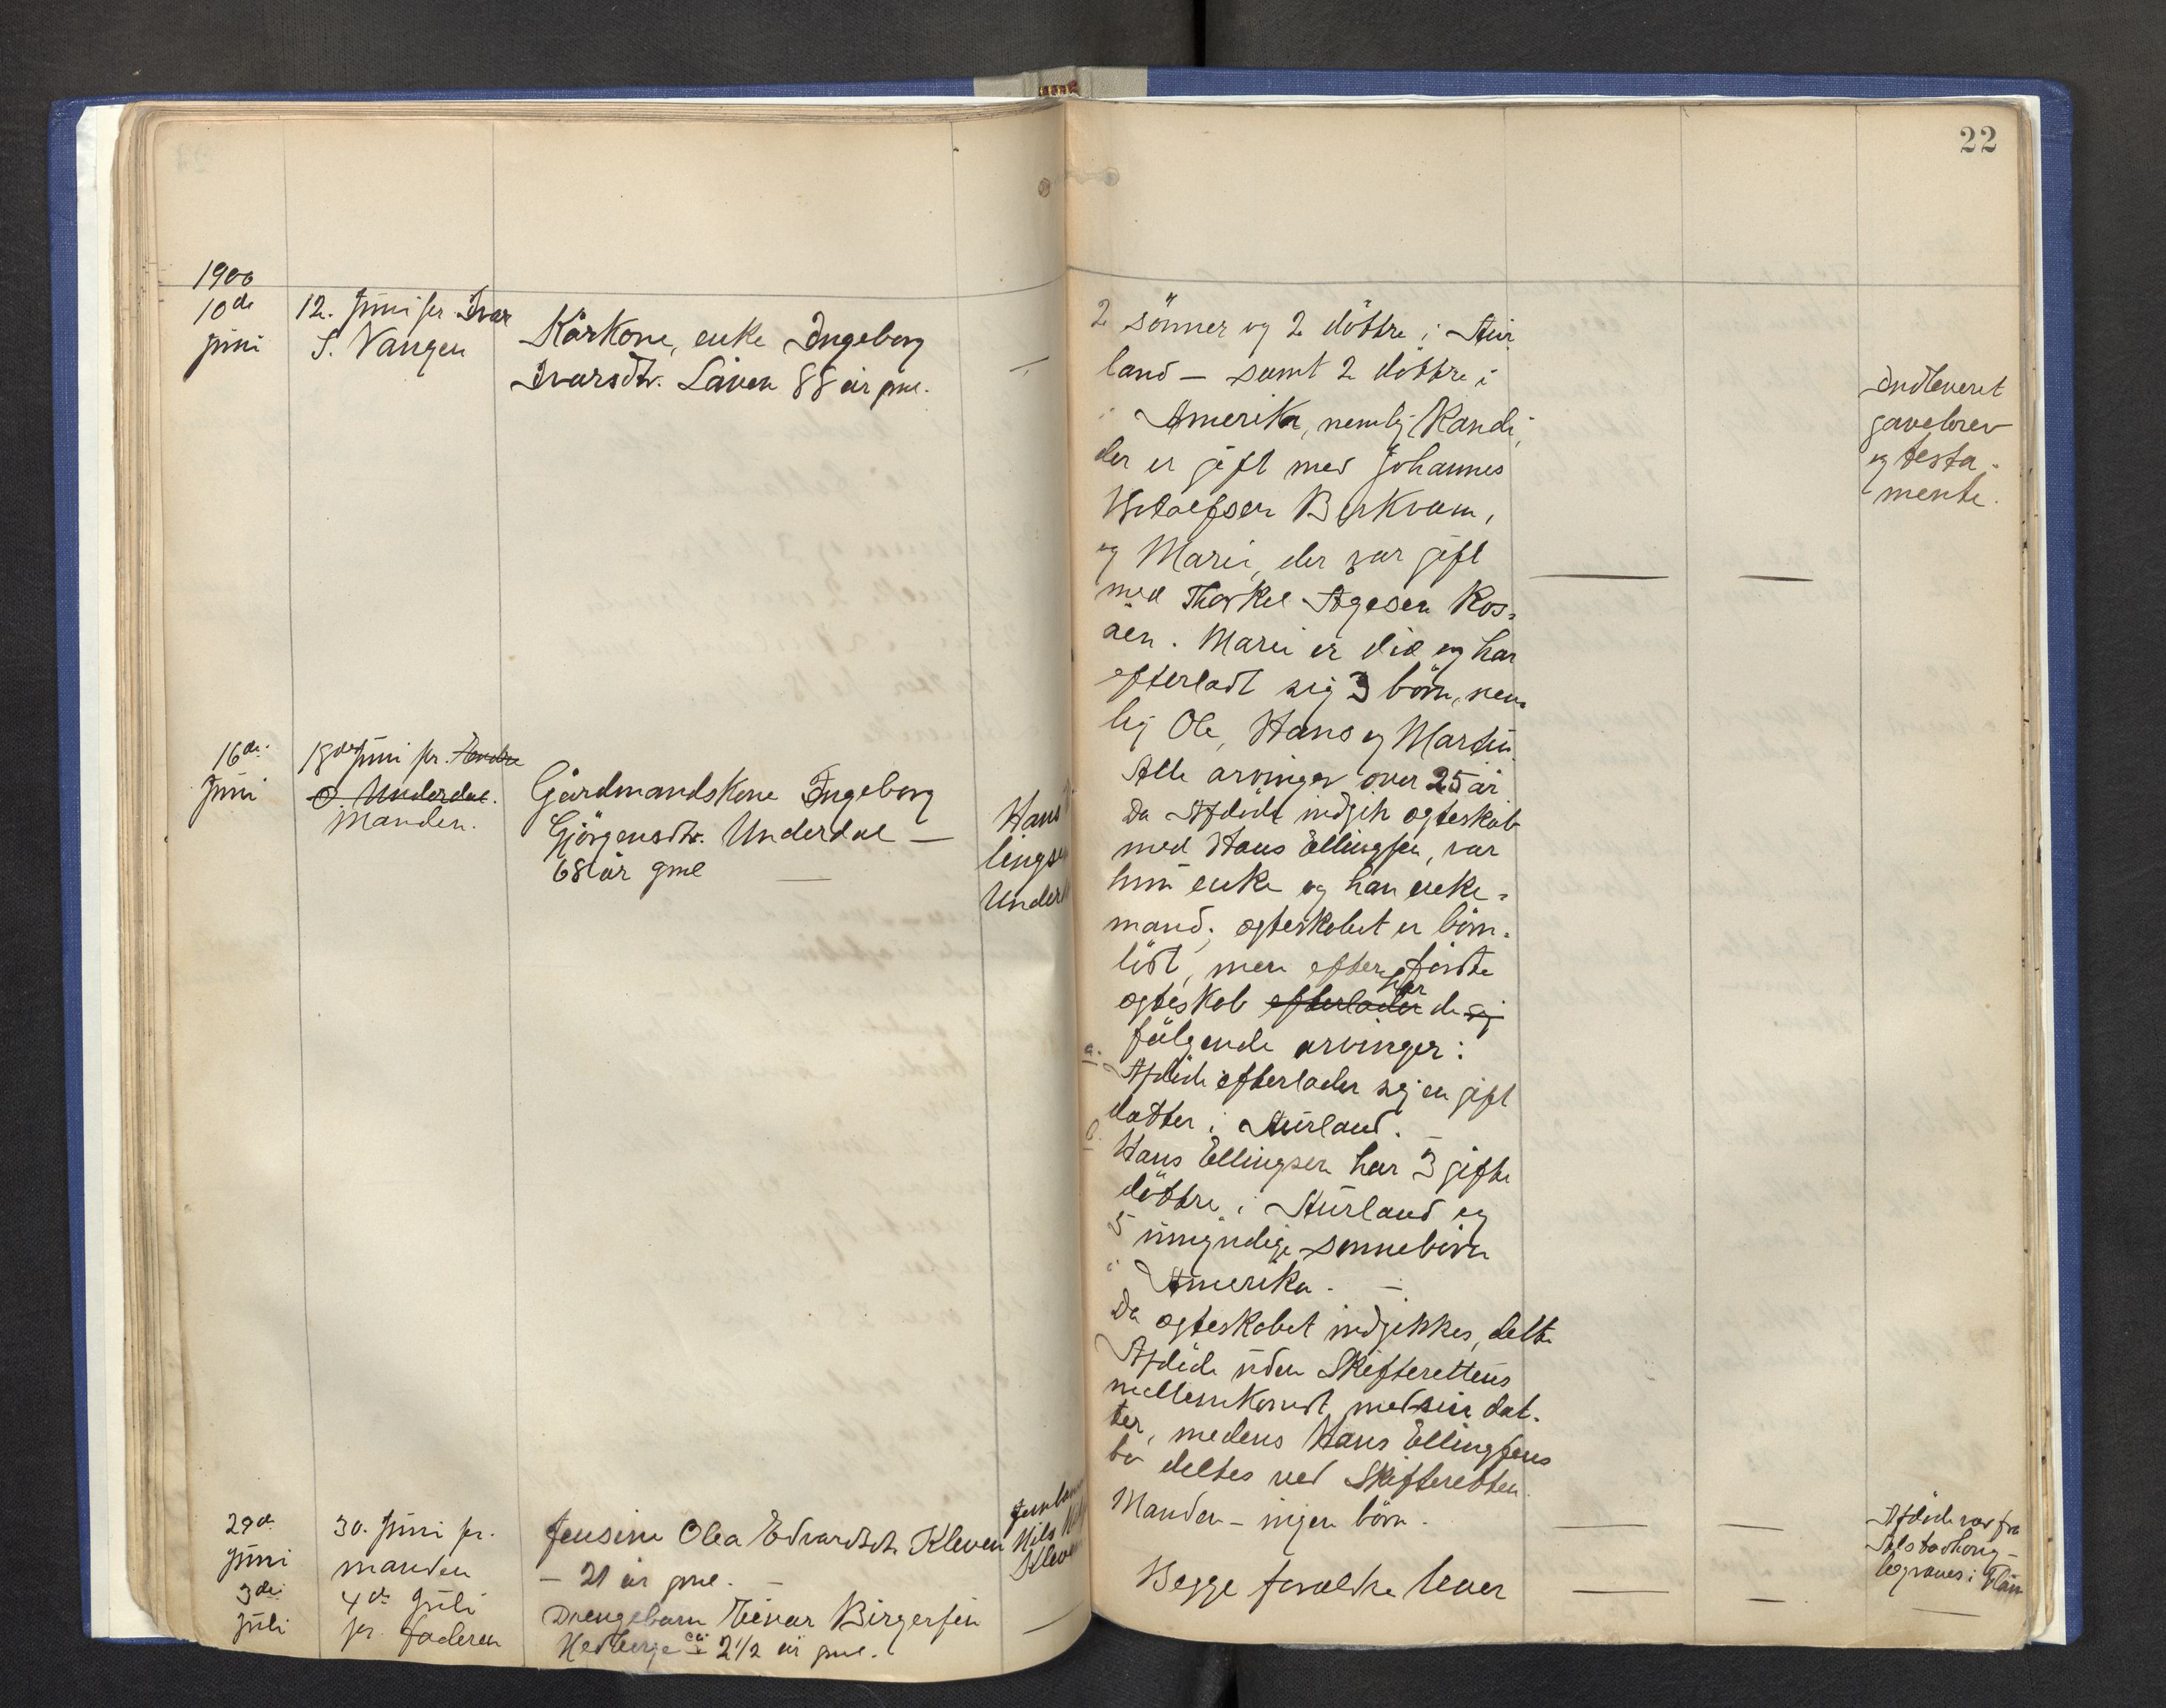 22
1900
10de
juni
12. juni pr. Ivar
S. Vangen
Kårkone, enke Ingeborg
Ivarsdtr. Låven 88 år gml.
—
2 sönner og 2 döttre i Aur
land — samt 2 döttre i
Amerika, nemlig Randi,
der er gift med Johannes
Berkvam,
og Mari, der var gift
med Thorkel Agesen
Marii er död og har
efterladt sig 3 börn, nem
lig Ole, Hans og Martin.
Alle arvinger over 25 år
— —
Indleveret
gavebrev
og testa-
mente.
16de
juni
18de juni pr.
O. Underdal.
manden.
Gårdmandskone Ingeborg
Gjörgensdtr. Underdal —
68 år gml —
Hans
lingse
Under
Da Afdöde indgik egteskab
med Hans Ellingsen, var
hun enke og han enke-
mand; egteskabet er börn-
löst, men efter förste
har
egteskab efterlader de sig
fölgende arvinger:
a.
Afdöde efterlader sig en gift
datter i Aurland. —
b.
Hans Ellingsen har 3 gifte
döttre i Aurland og
5 umyndige sönnebörn
i Amerika. —
Da egteskabet indgikkes, delte
Afdöde uden Skifterettens
mellemkomst med sin dat-
ter, medens Hans Ellingsens
bo deltes ved Skifteretten.
29de
juni
30. juni pr.
manden
Jensine Olea Edvardsdtr. Kleven
— 21 år gml. —
Nils
Kleven
Manden — ingen börn.
— —
Afdöde var fra
begraves i Flåm
3die
juli
4de juli
pr. faderen
Drengebarn Einar Birgersen
Hedberg ca: 2 1/2 år gml.
—
Begge foreldre lever
— — —